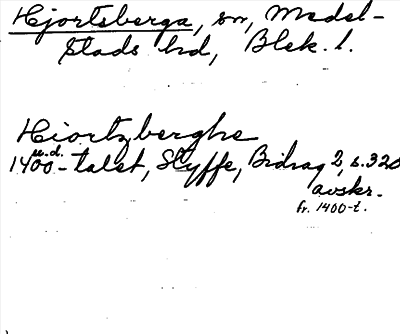 Hjortsberga, sn, Medel-
stads hd, Blek. l.
Hiortzberghe
u.d.
1400-talet, Styffe, Bidrag 2, s. 328
avskr.
fr. 1400-t.